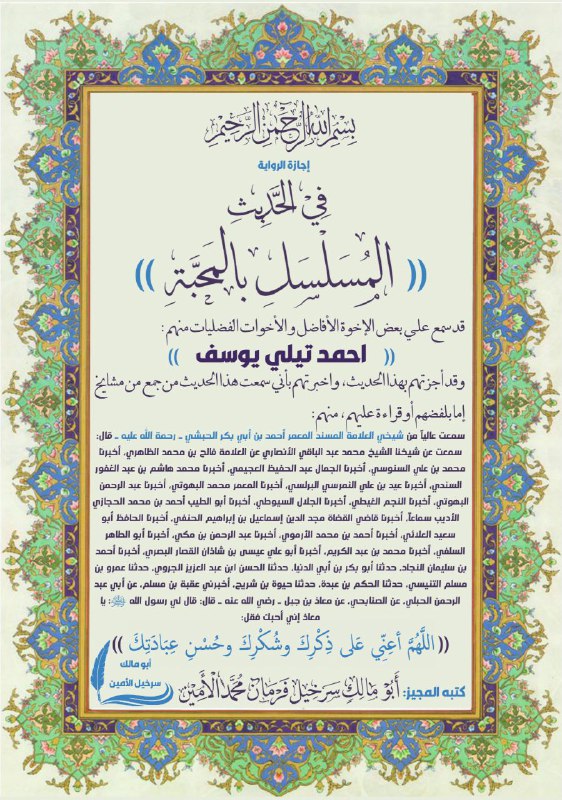 بِسْمِ اللَّهِ الرَّحْمَنِ الرَّحِيمِ
اجازة الرواية
فِي الحَدِيثِ
(( المُسَلْسَلِ بالمَحَبَّةِ ))
قد سمع علي بعض الإخوة الأفاضل والأخوات الفضليات منهم:
(( احمد تيلي يوسف ))
وقد أجزتهم بهذا الحديث، واخبرتهم بأني سمعت هذا الحديث من جمع من مشايخ
إما بلفضهم أو قراءة عليهم، منهم:
سمعت عالياً من شيخي العلامة المسند المعمر أحمد بن أبي بكر الحبشي ـ رحمة الله عليه ـ قال:
سمعت عن شيخنا الشيخ محمد عبد الباقي الأنصاري عن العلامة فالح بن محمد الظاهري، أخبرنا
محمد بن علي السنوسي، أخبرنا الجمال عبد الحفيظ العجيمي، أخبرنا محمد هاشم بن عبد الغفور
السندي، أخبرنا عيد بن علي النمرسي البرلسي، أخبرنا المعمر محمد البهوتي، أخبرنا عبد الرحمن
البهوتي، أخبرنا النجم الغيطي، أخبرنا الجلال السيوطي، أخبرنا أبو الطيب أحمد بن محمد الحجازي
الأديب سماعاً، أخبرنا قاضي القضاة مجد الدين إسماعيل بن إبراهيم الحنفي، أخبرنا الحافظ أبو
سعيد العلائي، أخبرنا أحمد بن محمد الأرموي، أخبرنا عبد الرحمن بن مكي، أخبرنا أبو الطاهر
السلفي، أخبرنا محمد بن عبد الكريم، أخبرنا أبو علي عيسى بن شاذان القصار البصري، أخبرنا أحمد
بن سليمان النجاد، حدثنا أبو بكر بن أبي الدنيا، حدثنا الحسن ابن عبد العزيز الجروي، حدثنا عمرو بن
مسلم التنيسي، حدثنا الحكم بن عبدة، حدثنا حيوة بن شريح، أخبرني عقبة بن مسلم، عن أبي عبد
الرحمن الحبلي، عن الصنابحي، عن معاذ بن جبل ـ رضي الله عنه ـ قال: قال لي رسول الله ﷺ: يا
معاذ إني أحبك فقل:
(( اللَّهُمَّ أَعِنِّي عَلى ذِكْرِكَ وشُكْرِكَ وحُسْنِ عِبَادَتِكَ ))
كتبه المجيز: أَبُو مَالِك سَرخِيل فَرمَان مُحَمَّد الأَمِين
أبو مالك
سرخيل الأمين